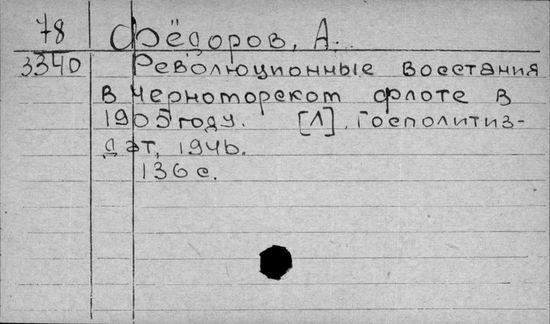 78 Фёдоров, А.
3340 Революционные восстания
в Черноморском флоте в
1905 году. [Л], Госполитиз-
дат, 1946.
136 с.